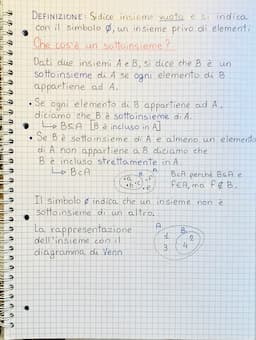 DEFINIZIONE: Si dice insieme vuoto e si indica
con il simbolo ∅, un insieme privo di elementi.
Che cos'è un sottoinsieme?
Dati due insiemi A e B, si dice che B è un
sottoinsieme di A se ogni elemento di B
appartiene ad A.
• Se ogni elemento di B appartiene ad A,
diciamo che B è sottoinsieme di A.
↳ B⊆A [B è incluso in A]
• Se B è sottoinsieme di A e almeno un elemento
di A non appartiene a B diciamo che
B è incluso strettamente in A.
↳ B⊂A
B⊂A perché B⊆A e
f∈A, ma f∉B.
Il simbolo ⊄ indica che un insieme non è
sottoinsieme di un altro.
La rappresentazione
dell'insieme con il
diagramma di Venn
A B
1 2
3 4